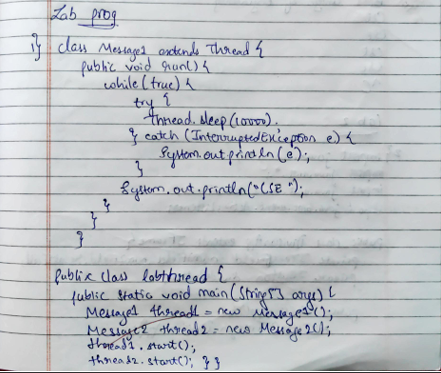 Lab prog
i} class Message1 extends Thread {
public void run() {
while (true) {
try {
Thread.sleep(10000).
} catch (InterruptedException e) {
System.out.println(e);
}
System.out.println("CSE");
}
}
}
public class labthread {
public static void main(String[] args) {
Message1 thread1 = new Message1();
Message2 thread2 = new Message2();
thread1.start();
thread2.start(); } }